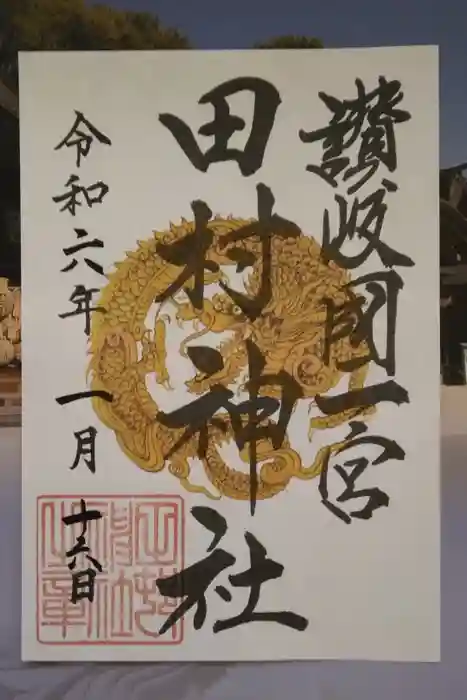 讃岐國一宮
田村神社
令和六年一月十六日